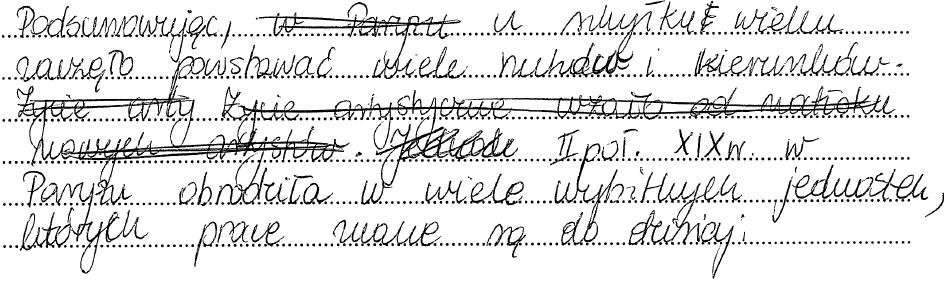 Podsumowując, w Paryżu u schyłku wieku
zaczęło powstawać wiele nurtów i kierunków.
Życie arty Życie artystyczne wrzało od natłoku
nowych artystów. II poł. XIXw. w
Paryżu obrodziła w wiele wybitnych jednostek,
których prace znane są do dzisiaj.